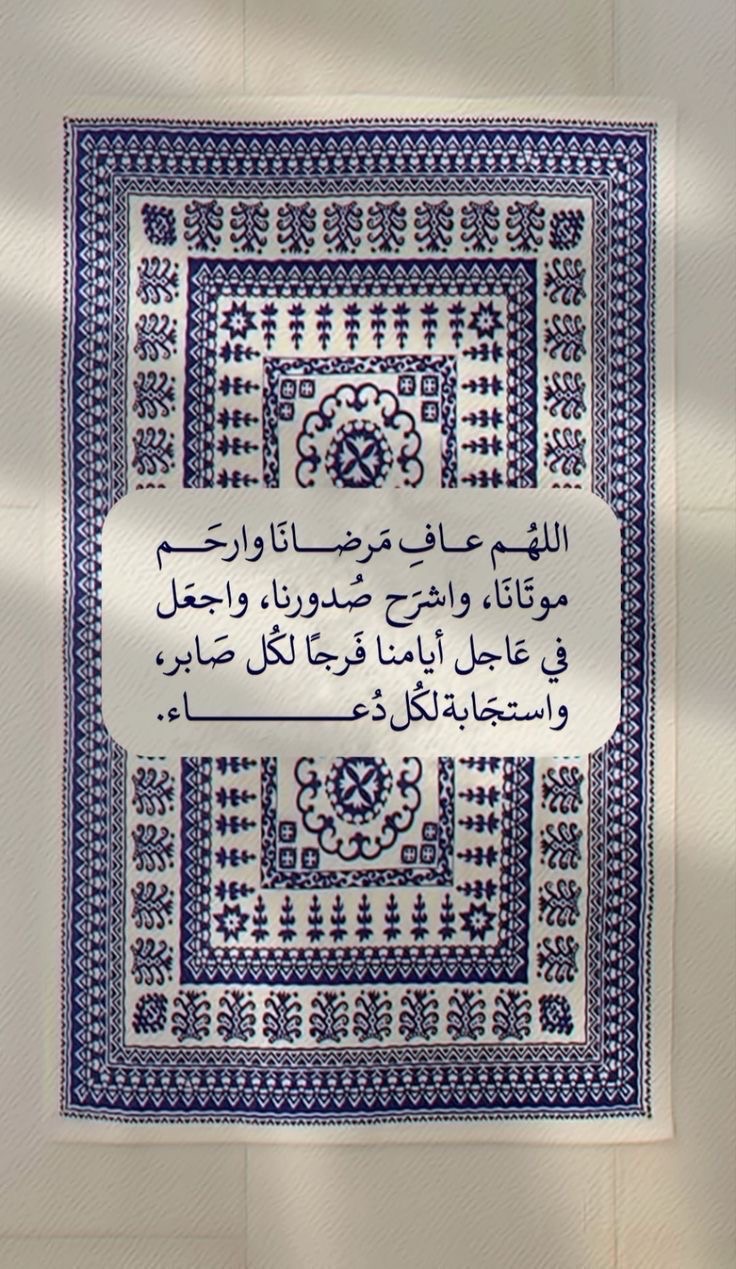 اللهُـم عـافِ مَرضـانَا وارحَـم
موتَانَا، واشرَح صُدورنا، واجعَل
في عَاجل أيامنا فَرجًا لكُل صَابر،
واستجَابة لكُل دُعـاء.